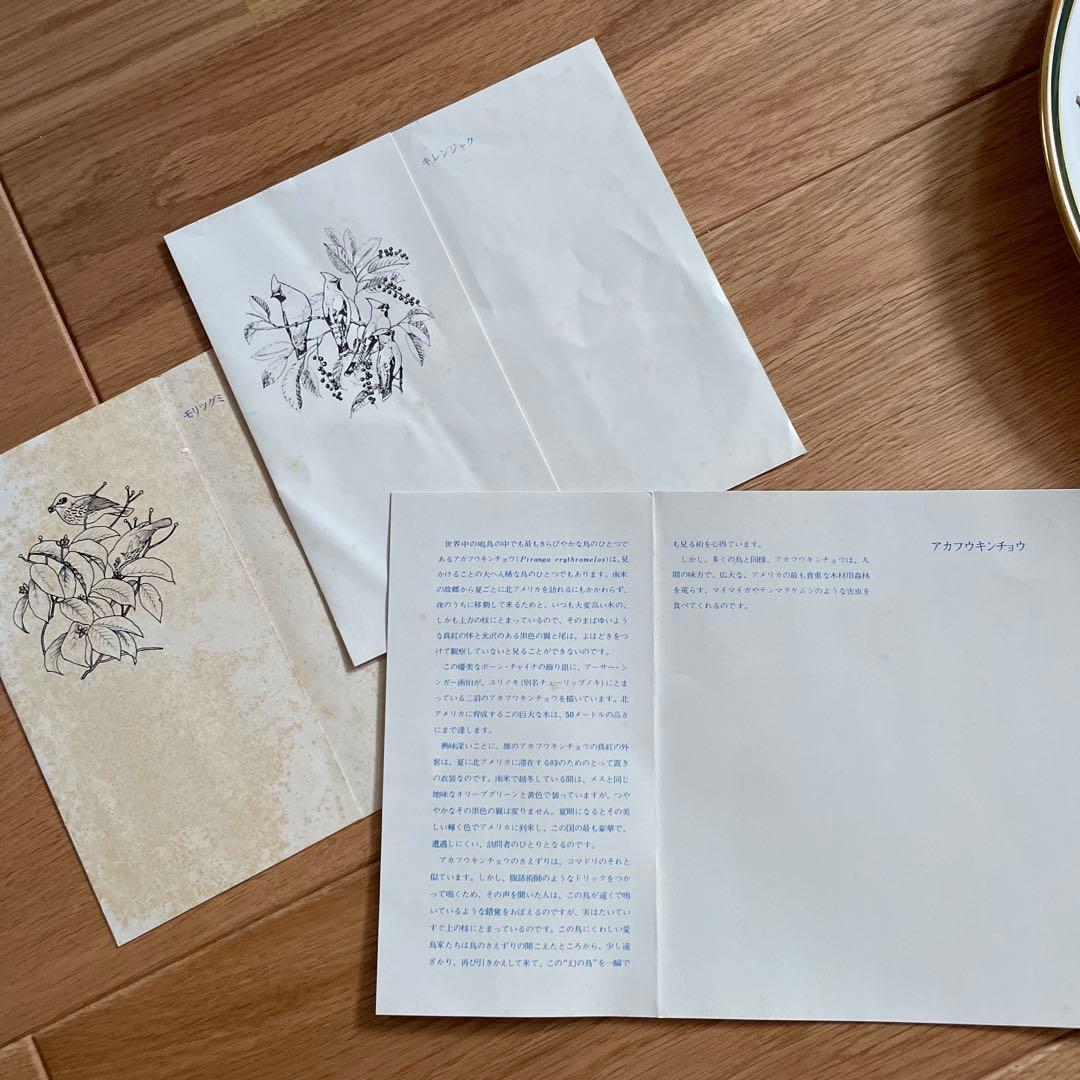 キレンジャク
モリツグミ
世界中の鳴鳥の中でも最もきらびやかな鳥のひとつで
あるアカフウキンチョウ(Piranga erythromelos)は、見
かけることの大へん稀な鳥のひとつでもあります。南米
の故郷から夏ごとに北アメリカを訪れるにもかかわらず、
夜のうちに移動して来るためと、いつも大変高い木の、
しかも上方の枝にとまっているので、そのまばゆいよう
な真紅の体と光沢のある黒色の翼と尾は、よほどきをつ
けて観察していないと見ることができないのです。
この優美なボーン・チャイナの飾り皿に、アーサー・シ
ンガー画伯が、ユリノキ(別名チューリップノキ)にとま
っている二羽のアカフウキンチョウを描いています。北
アメリカに育成するこの巨大な木は、50メートルの高さ
にまで達します。
興味深いことに、雄のアカフウキンチョウの真紅の外
套は、夏に北アメリカに滞在する時のためのとって置き
の衣装なのです。南米で越冬している間は、メスと同じ
地味なオリーブグリーンと黄色で装っていますが、つや
やかなその黒色の翼は変りません。夏期になるとその美
しい輝く色でアメリカに到来し、この国の最も豪華で、
遭遇しにくい、訪問者のひとりとなるのです。
アカフウキンチョウのさえずりは、コマドリのそれと
似ています。しかし、腹話術師のようなトリックをつか
って鳴くため、その声を聞いた人は、この鳥が遠くで鳴
いているような錯覚をおぼえるのですが、実はたいてい
すぐ上の枝にとまっているのです。この鳥にくわしい愛
鳥家たちは鳥のさえずりの聞こえたところから、少し遠
ざかり、再び引きかえして来て、この“幻の鳥”を一瞬で
も見る術を心得ています。
しかし、多くの鳥と同様、アカフウキンチョウは、人
間の味方で、広大な、アメリカの最も貴重な木材用森林
を荒らす、マイマイガやテンマクケムシのような害虫を
食べてくれるのです。
アカフウキンチョウ